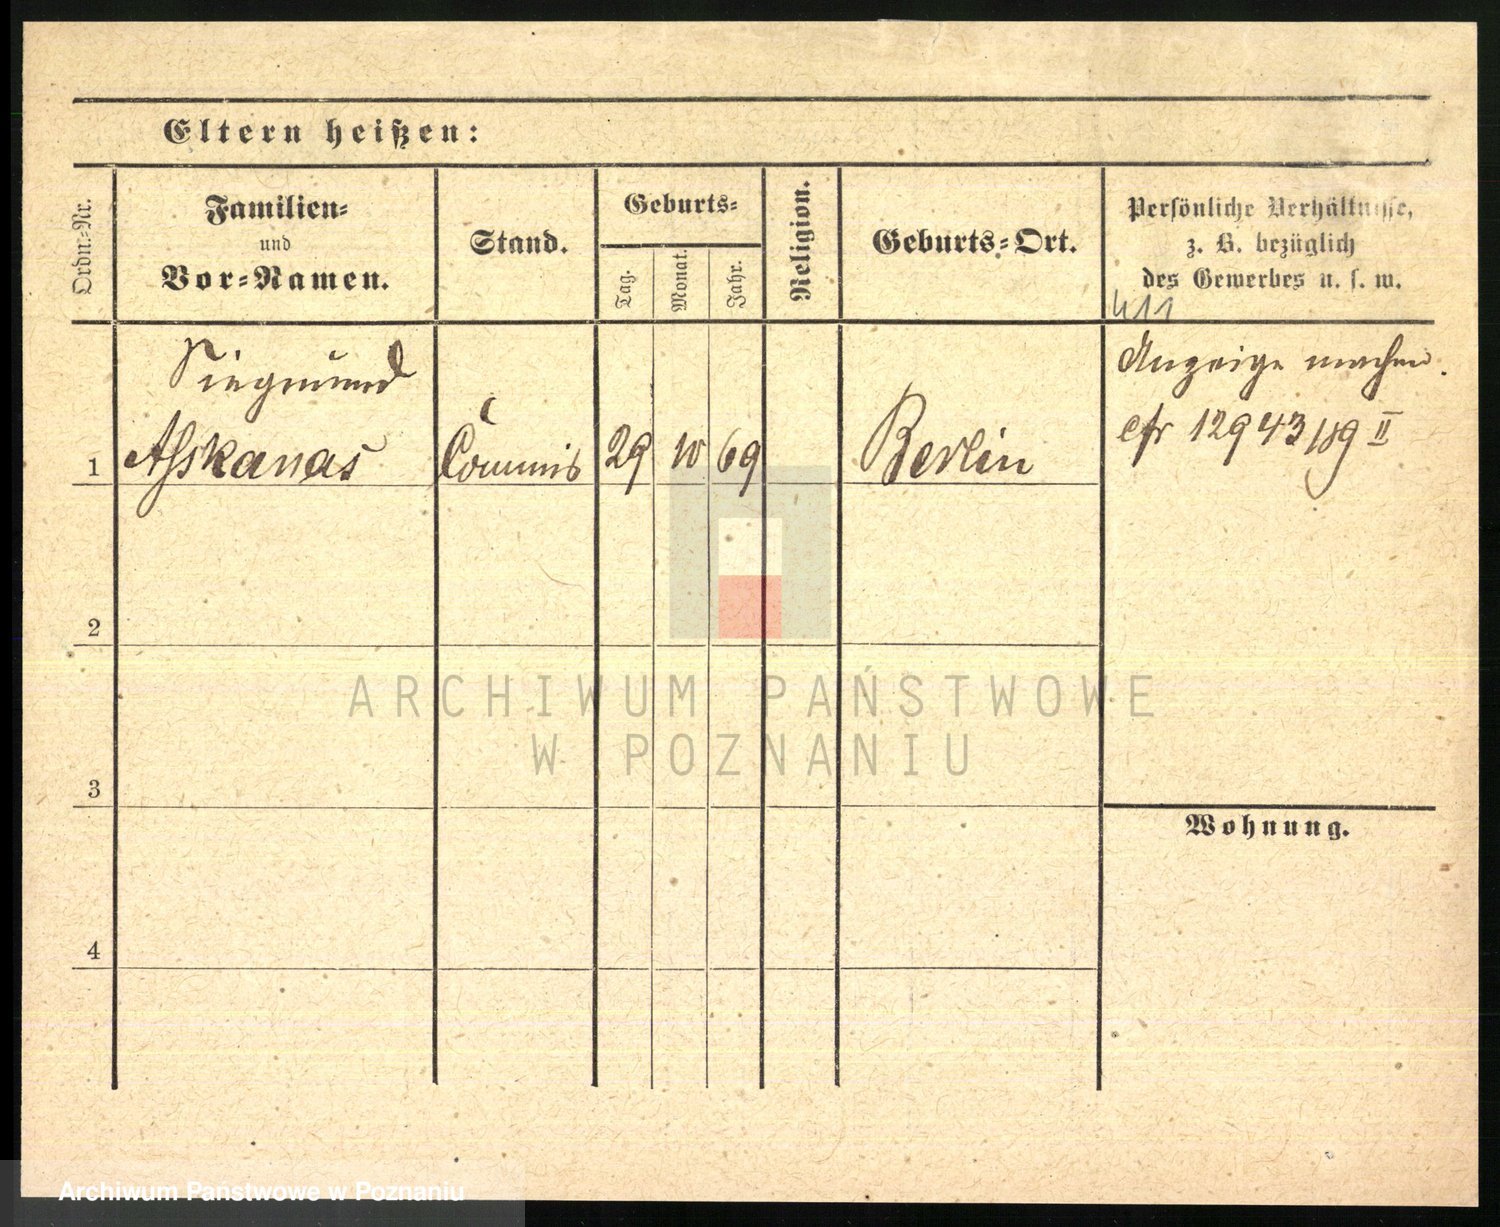 Eltern heißen:
Ordn.-Nr.
Familien-
und
Vor-Namen.
Stand.
Geburts-
Tag.
Monat.
Jahr.
Religion.
Geburts-Ort.
Persönliche Verhältnisse,
z. B. bezüglich
des Gewerbes u. s. w.
411
Siegmund
1 Aßkanas Commis 29 10 69 Berlin
Anzeige machen.
cfr 12943/89 II
2
3
4
Wohnung.
ARCHIWUM PAŃSTWOWE
W POZNANIU
Archiwum Państwowe w Poznaniu